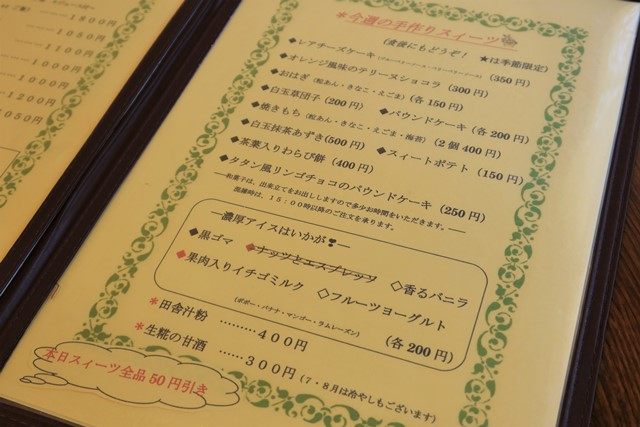 1800円
1050円
1100円
1000円
1200円
1050円
*今週の手作りスイーツ
(食後にもどうぞ! ★は季節限定)
◆レアチーズケーキ (350円)
◆オレンジ風味のテリーヌショコラ (300円)
◆おはぎ (粒あん・きなこ・えごま) (各150円)
◆白玉草団子 (200円) ◆パウンドケーキ (各200円)
◆焼きもち (粒あん・きなこ・えごま・海苔) (2個400円)
◆白玉抹茶あずき(500円) ◆スイートポテト (150円)
◆茶葉入りわらび餅 (400円)
◆タタン風リンゴチョコのパウンドケーキ (250円)
―和菓子は、出来立てをお出ししますので多少お時間をいただきます。―
混雑時は、15:00時以降のご注文を承ります。
―濃厚アイスはいかが❣―
◆黒ゴマ ◆ナッツとエスプレッソ ◇香るバニラ
◆果肉入りイチゴミルク ◇フルーツヨーグルト
(ポポー・バナナ・マンゴー・ラムレーズン) (各200円)
*田舎汁粉 ………400円
*生糀の甘酒 ……300円 (7・8月は冷やしもございます)
本日スイーツ全品50円引き